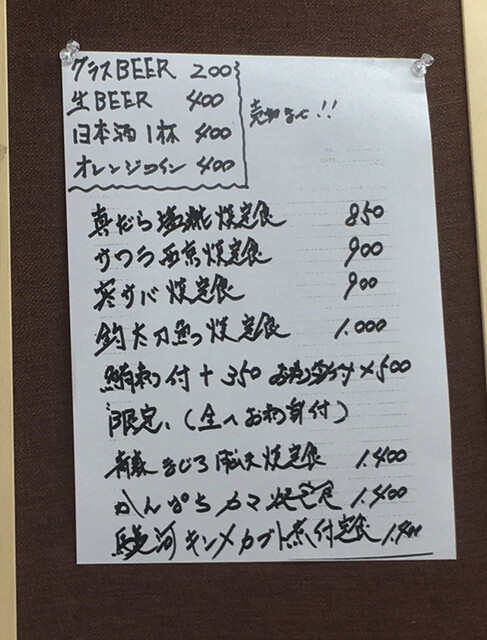 グラスBEER 200
生BEER 400
日本酒1杯 400
オレンジワイン 400
売切まで!!
真だら塩糀焼定食 850
サワラ西京焼定食 900
寒サバ焼定食 900
釣太刀魚焼定食 1.000
刺付+350 お刺身付×500
限定、(全へお刺身付)
青森まぐろ焼定食 1.400
かんぱちカマ焼定食 1.400
駿河キンメカブト煮付定食 1.400